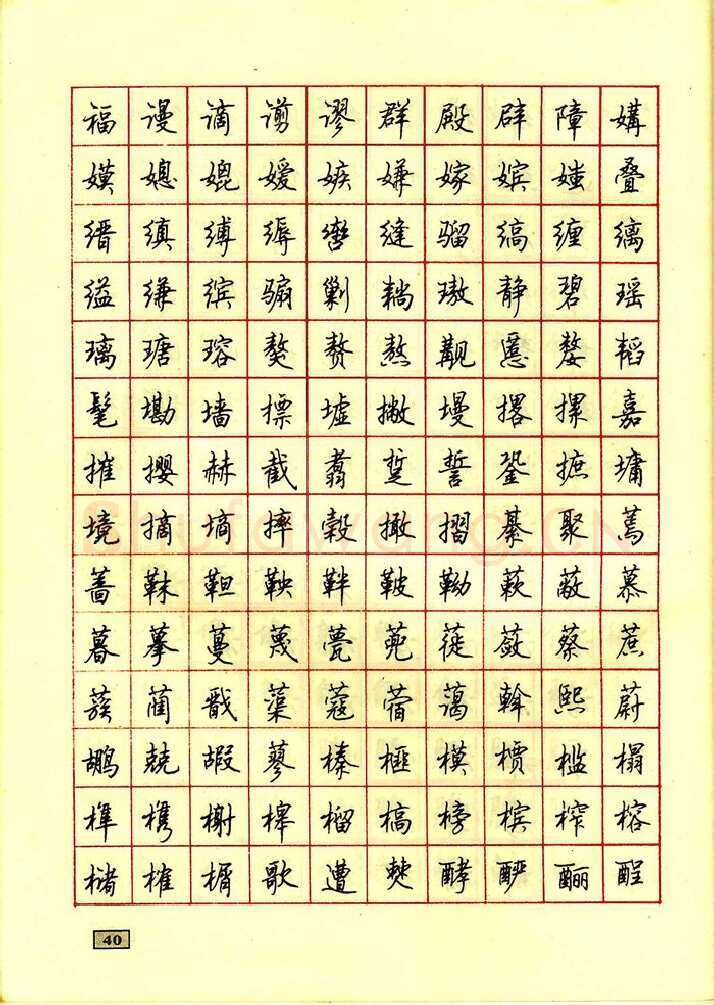 福谩谪谫谬群殿辟障媾
嫫媳媲嫒嫉嫌嫁嫔媸叠
缙缜缚缛辔缝骝缟缠缡
缢缣缤骟剿耥璈静碧瑶
璃瑭瑢獒赘熬觏慝嫠韬
髦墈墙摽墟撇墁撂摞嘉
摧撄赫截翥踅誓銎摭墉
境摘墒摔榖撖摺綦聚蔫
蔷靺靼鞅靽鞁靿蔌蔽慕
暮摹蔓蔑甍蔸蓰蔹蔡蔗
蔟蔺戬蕖蔻蓿蔼斡熙蔚
鹕兢嘏蓼榛榧模槚槛榻
榫槜榭槔榴槁榜槟榨榕
槠榷榍歌遭僰酵酽酾酲
40